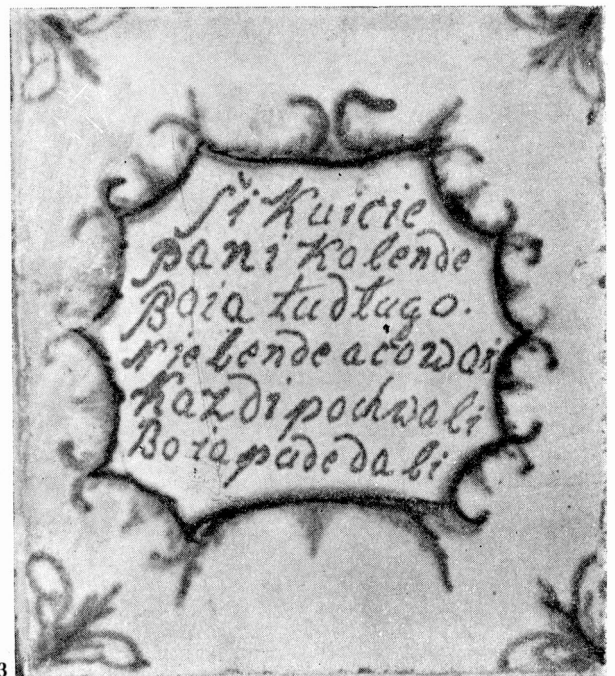 Śi Kuicie
pani Kolende
Boia tudługo.
Niebende acowai
Kazdi pochwali
Boia pude dali
3